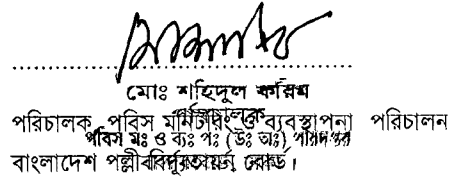 মোঃ শহিদুল করিম
পরিচালক
পরিচালক, পবিস মনিটরিং ও ব্যবস্থাপনা পরিচালন
পবিস মঃ ও ব্যঃ পঃ (উঃ অঃ) পরিদপ্তর
বাংলাদেশ পল্লী বিদ্যুতায়ন বোর্ড।